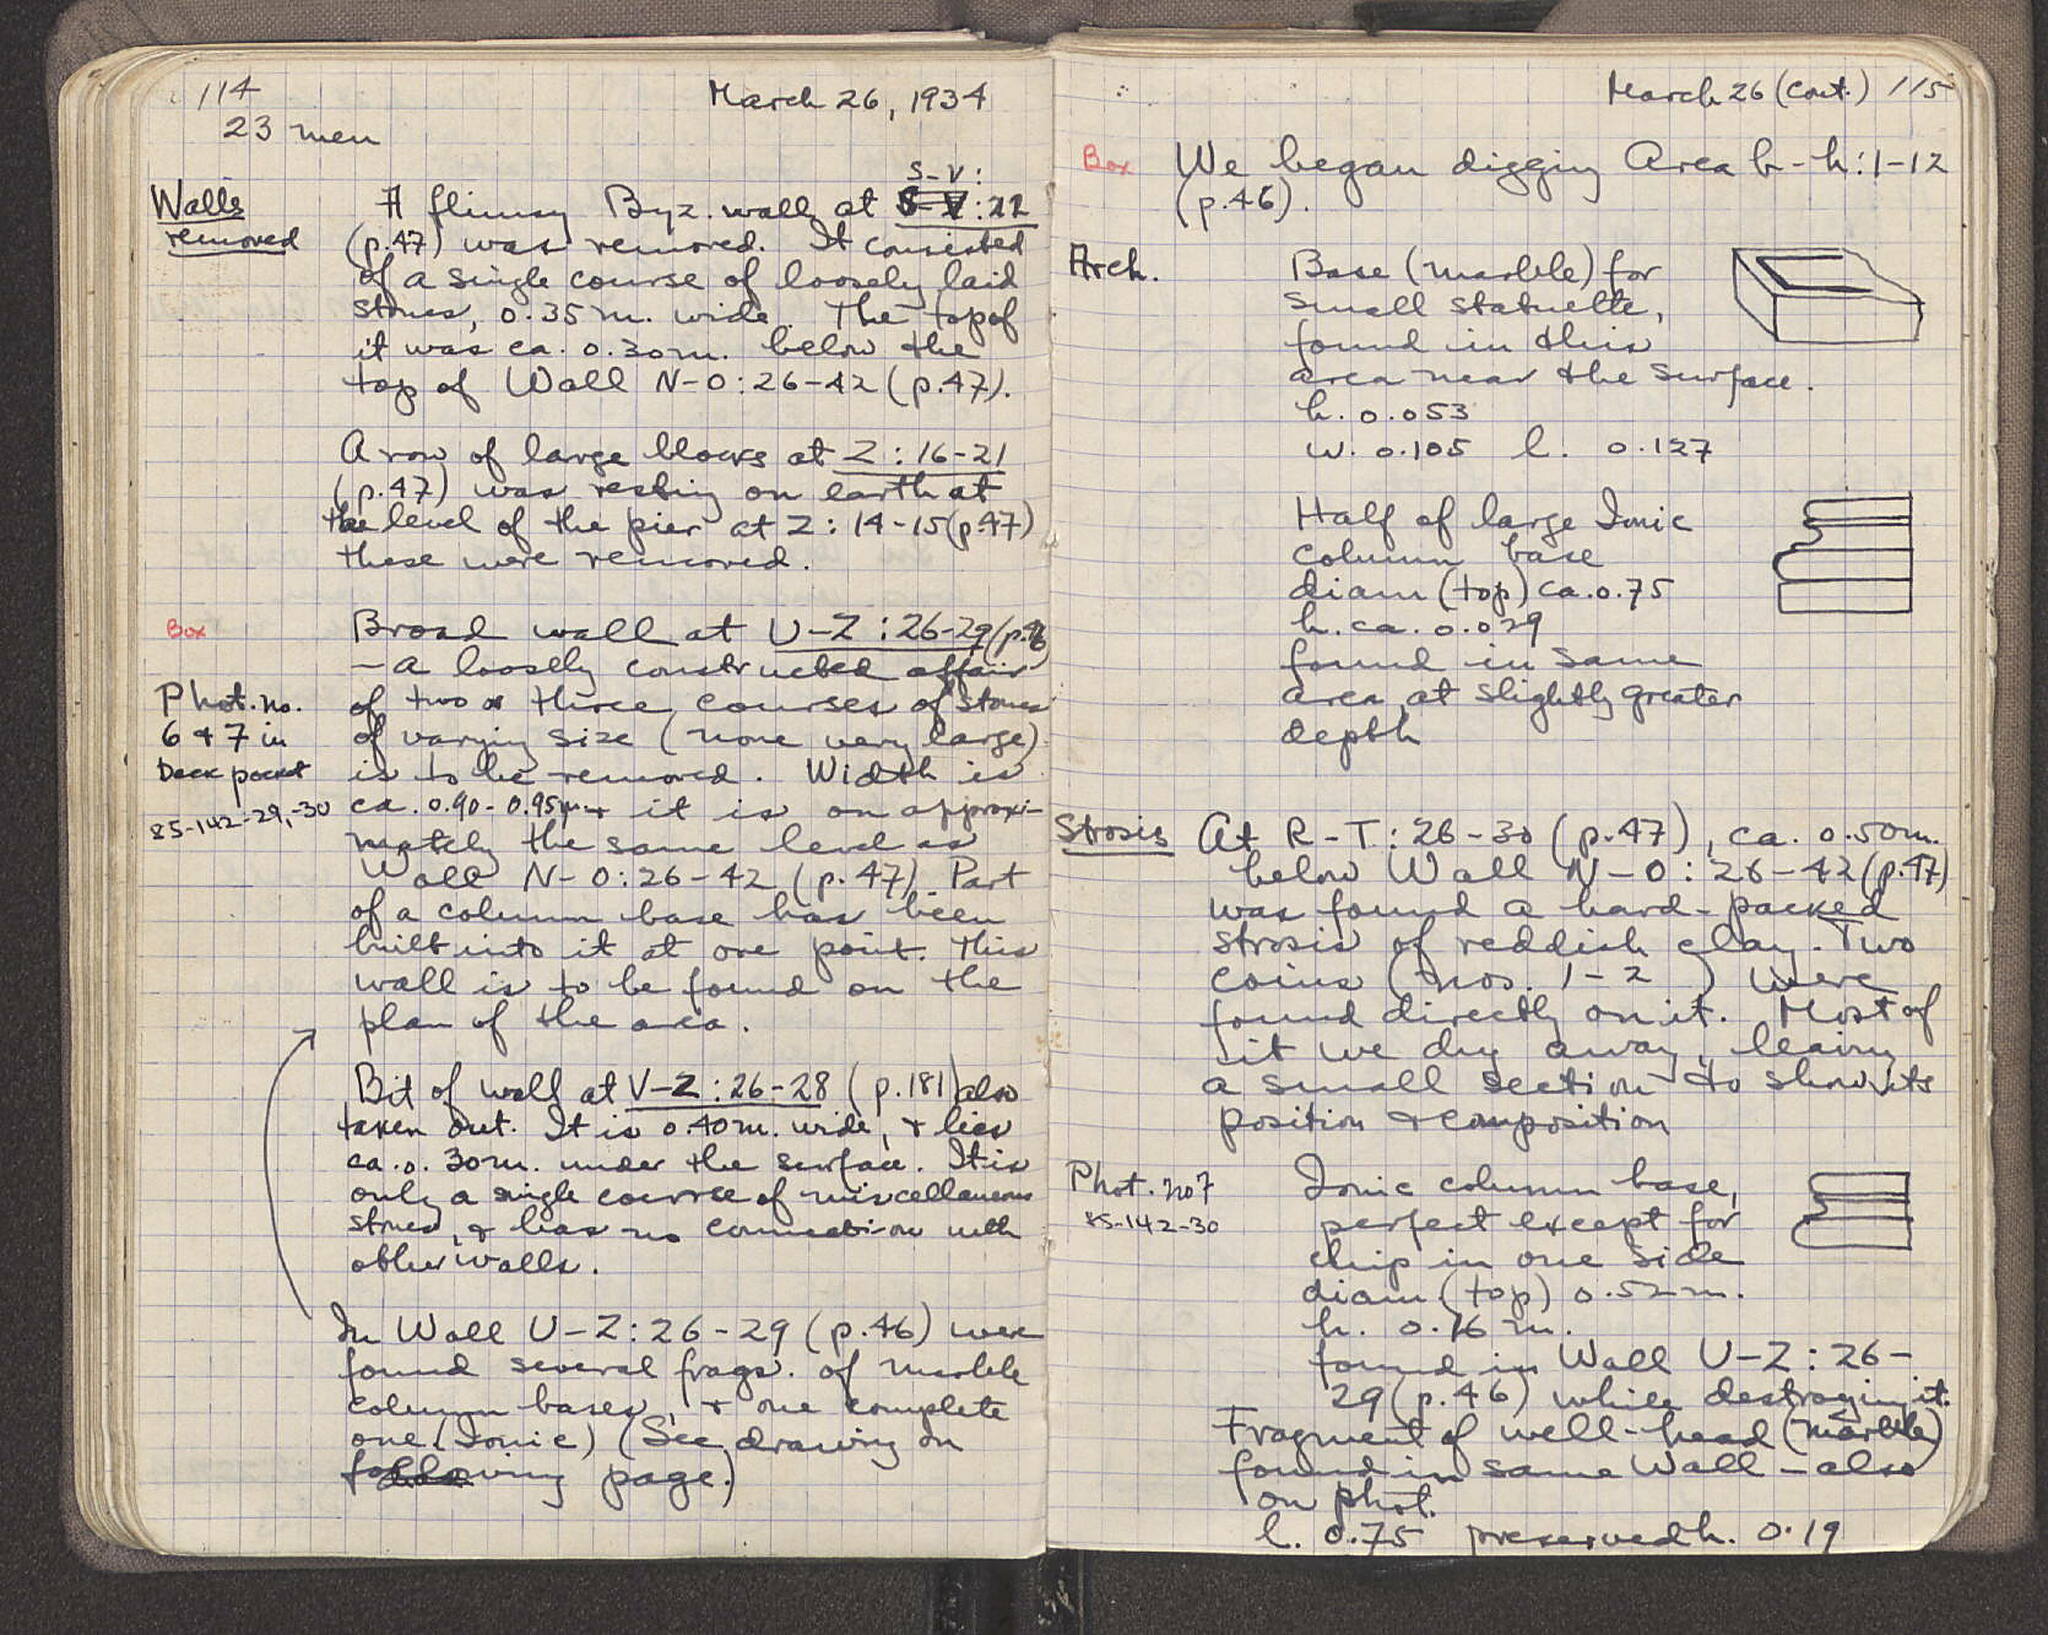 114
March 26, 1934
23 men
Walls
removed
S-V:
A flimsy Byz. wall at S-V:22
(p.47) was removed. It consisted
of a single course of loosely laid
stones, 0.35 m. wide. The top of
it was ca. 0.30 m. below the
top of Wall N-O:26-42 (p.47).
A row of large blocks at Z:16-21
(p.47) was resting on earth at
the level of the pier at Z:14-15 (p.47)
these were removed.
Box
Broad wall at U-Z:26-29 (p.46)
- a loosely constructed affair
Phot. no.
6 & 7 in
back pocket
85-142-29,-30
of two or three courses of stones
of varying size (none very large)
is to be removed. Width is
ca. 0.90-0.95m. & it is on approxi-
mately the same level as
Wall N-O:26-42 (p.47). Part
of a column base has been
built into it at one point. This
wall is to be found on the
plan of the area.
Bit of wall at V-Z:26-28 (p.181) also
taken out. It is 0.40m. wide, & lies
ca. 0.30m. under the surface. It is
only a single course of miscellaneous
stones, & has no connection with
other walls.
In Wall U-Z:26-29 (p.46) were
found several frags. of marble
column bases, & one complete
one (Ionic) (See drawing on
following page.)
March 26 (cont.) 115
Box
We began digging Area b-h:1-12
(p.46).
Arch.
Base (marble) for
small statuette,
found in this
area near the surface.
h. 0.053
w. 0.105 l. 0.127
Half of large Ionic
column base
diam (top) ca. 0.75
h. ca. 0.029
found in same
area at slightly greater
depth
Strosis
At R-T:26-30 (p.47), ca. 0.50m.
below Wall N-O:26-42 (p.47)
was found a hard-packed
strosis of reddish clay. Two
coins (nos. 1-2 ) were
found directly on it. Most of
it we dug away, leaving
a small section to show its
position & composition
Phot. no 7
85-142-30
Ionic column base,
perfect except for
chip in one side
diam (top) 0.52 m.
h. 0.16 m.
found in Wall U-Z:26-
29 (p.46) while destroying it.
Fragment of well-head (marble)
found in same Wall - also
on phot.
l. 0.75 preserved h. 0.19